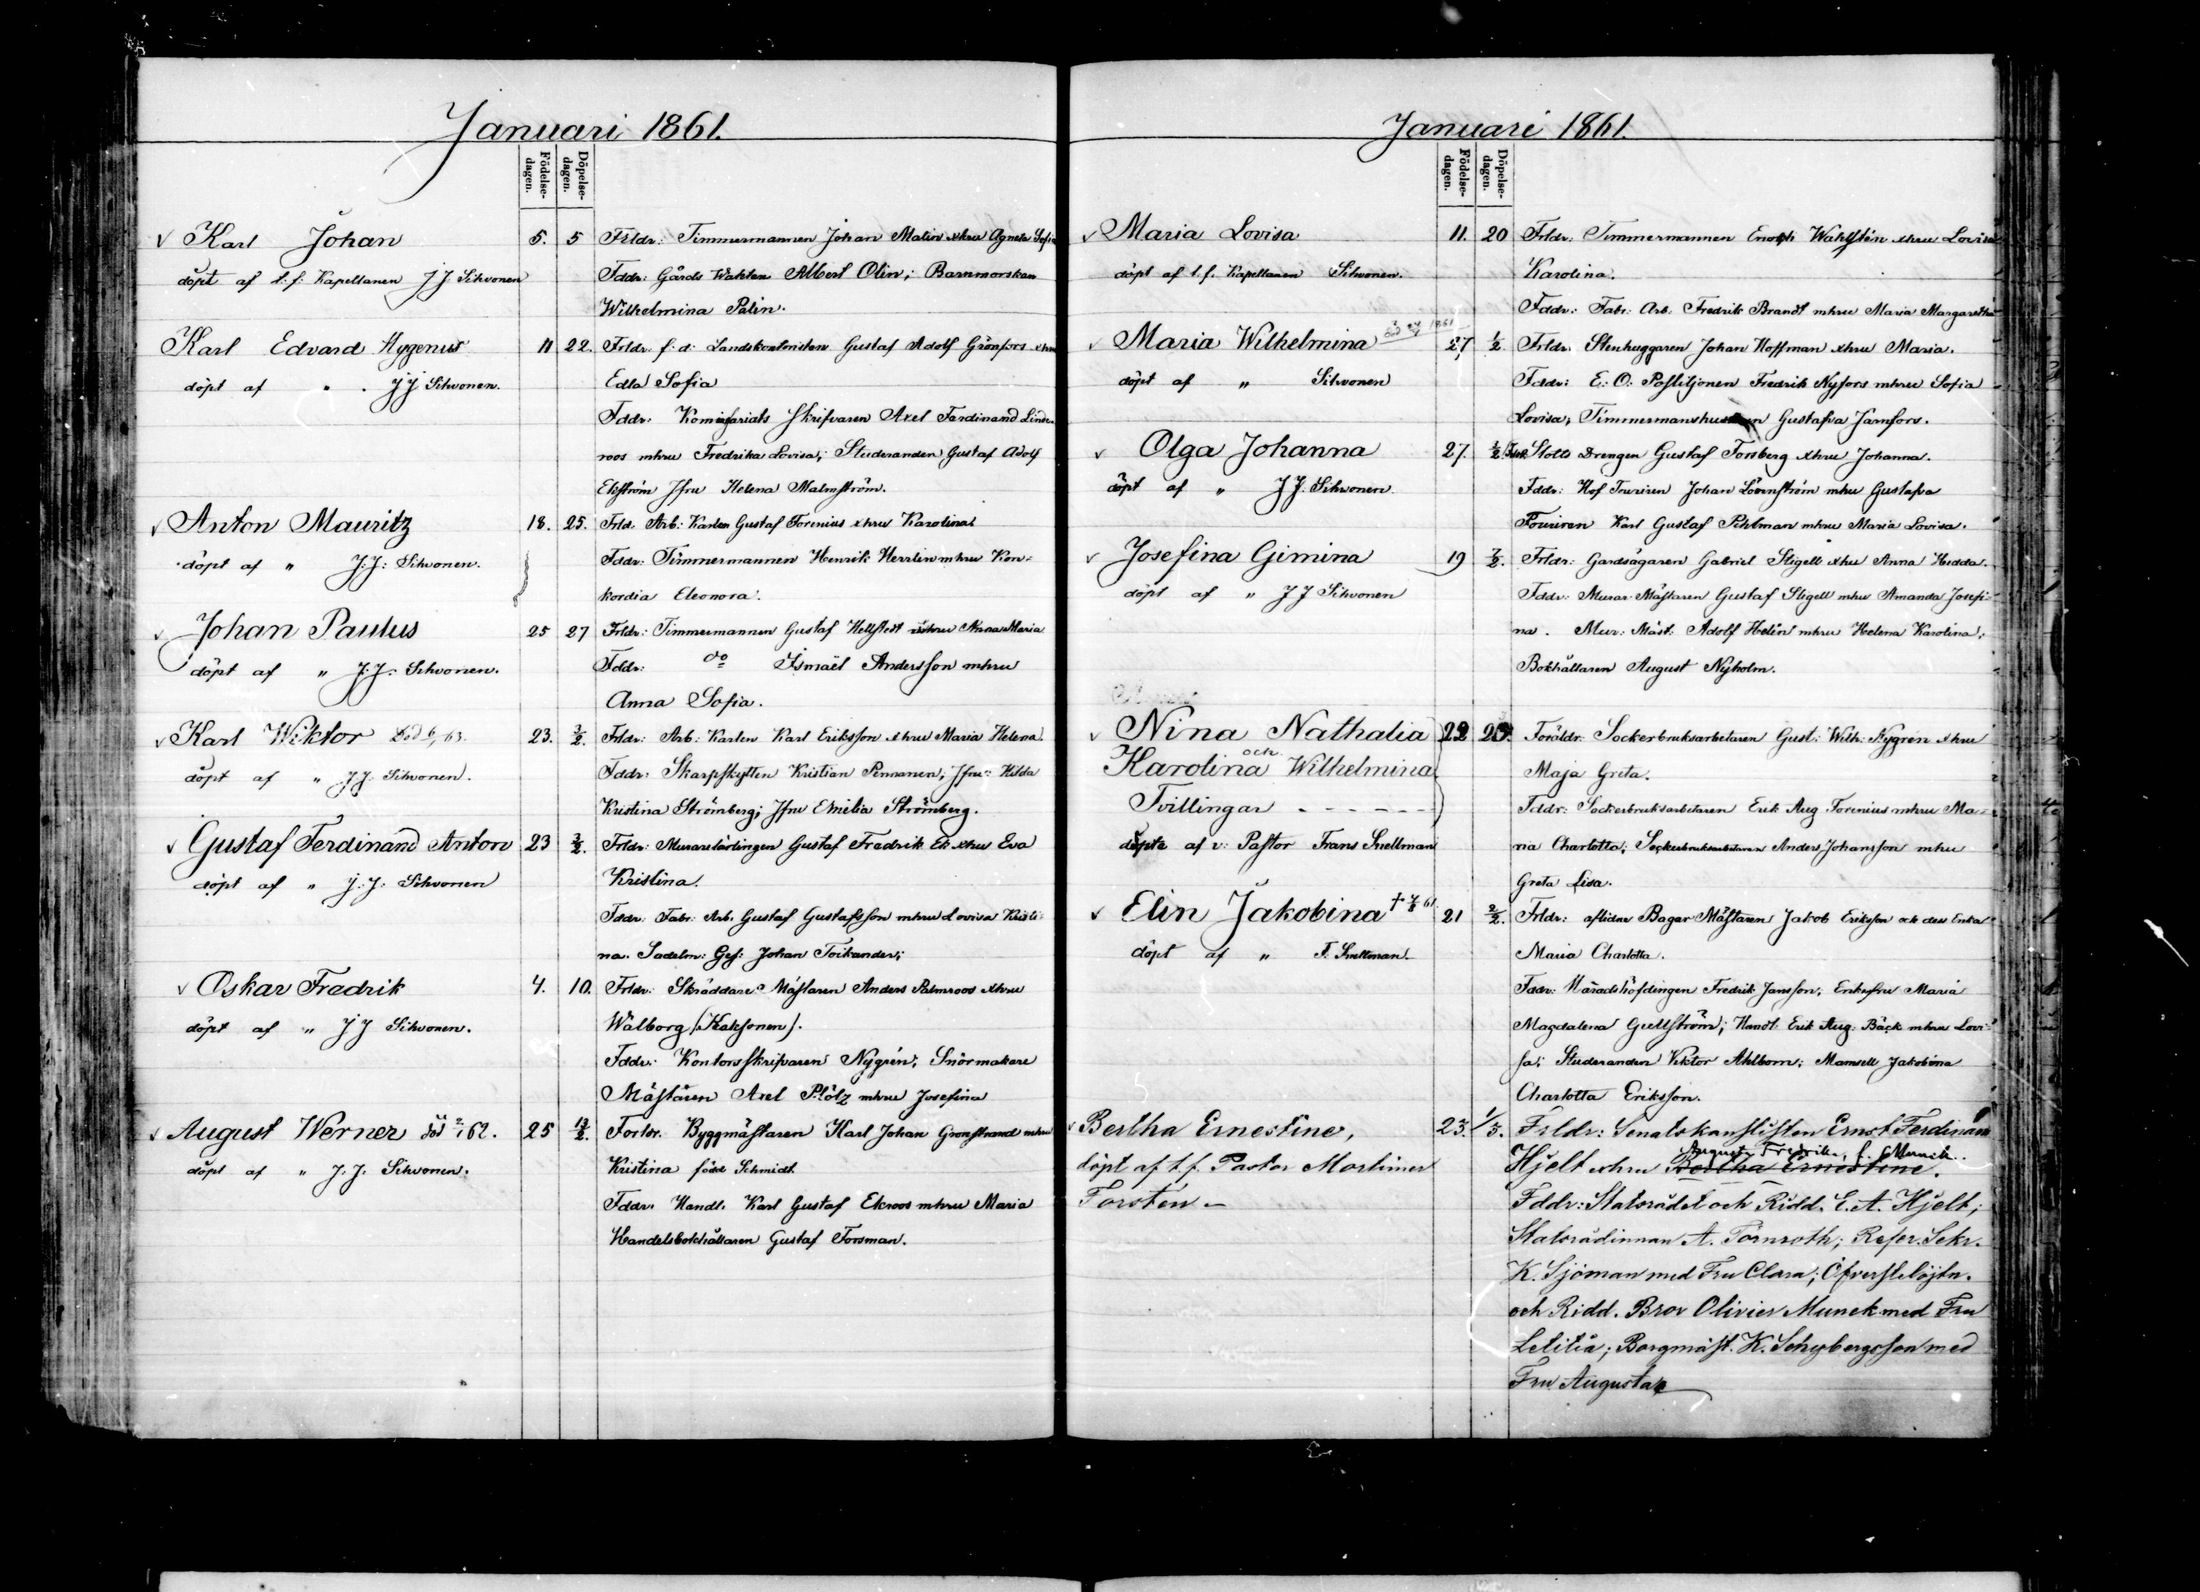 Januari 1861.
Födelse-dagen.
Döpelse-dagen.
Karl Johan 5. 5 Frldr: Timmermannen Johan Malin xhru Agneta Sofia
döpt af t: f: Kapellanen J J Sihvonen Fddr: Gårds Wakten Albert Olin; Barnmorskan
Wilhelmina Palin.
Karl Edvard Hygenus 11 22. Frldr. f: d: Landskontoristen Gustaf Adolf Grönfors xhru
döpt af " . J J Sihvonen. Edla Sofia
Fddr: Skrifvaren Axel Ferdinand Linde-
roos mhru Fredrika Lovisa; Studeranden Gustaf Adolf
Ekström Jfru Helena Malmström.
Anton Mauritz 18. 25. Frld. Arb: Karlen Gustaf Forenius xhru Karolina
döpt af " J: J: Sihvonen. Fddr: Timmermannen Henrik Herrlin mhru Kon-
kordia Eleonora.
Johan Paulus 25 27 Frldr: Timmermannen Gustaf Hellstedt xhru Anna Maria
döpt af " J: J: Sihvonen. Fddr: do Ismaël Andersson mhru
Anna Sofia.
Karl Wiktor död 6/, 63. 23. 2/2. Frldr: Arb: Karlen Karl Eriksson xhru Maria Helena.
döpt af " J J: Sihvonen. Fddr: Skarpskytten Kristian Pennanen; Jfru: Hilda
Kristina Strömberg; Jfru Emilia Strömberg.
Gustaf Ferdinand Anton 23 3/2. Frldr: Murarelärlingen Gustaf Fredrik Ek xhru Eva
döpt af " J: J: Sihvonen Kristina.
Fddr: Fabr: Arb. Gustaf Gustafsson mhru Lovisa Kristi-
na. Sadelm: Ges: Johan Toikander;
Oskar Fredrik 4. 10. Frldr: Skräddare Mästaren Anders Palmroos xhru
döpt af " J J Sihvonen. Walborg (Kaksonen).
Fddr: Kontorsskrifvaren Nygrén; Snörmakare
Mästaren Axel Plötz mhru Josefina
August Werner död 2/1 62. 25 12/2. Forldr. Byggmästaren Karl Johan Grönstrand mhru
döpt af " J: J: Sihvonen. Kristina född Schmidt
Fddr. Handl. Karl Gustaf Ekroos mhru Maria
Handelsbokhållaren Gustaf Forsman.
Januari 1861.
Födelse-dagen.
Döpelse-dagen.
Maria Lovisa 11. 20 Frldr: Timmermannen Enoch Wahlstén xhru Lovisa
döpt af t. f. Kapellanen Sihvonen. Karolina.
Fddr: Fabr: Arb. Fredrik Brandt mhru Maria Margaretha
Maria Wilhelmina död 1861 27 1/2 Frldr. Stenhuggaren Johan Hoffman xhru Maria.
döpt af " Sihvonen Fddr: E: O: Postiljonen Fredrik Nyfors mhru Sofia
Lovisa; Timmermanshustrun Gustafva Jarnfors.
Olga Johanna 27 1/2 Slotts Drengen Gustaf Forsberg xhru Johanna.
döpt af " J J: Sihvonen. Fddr: Hof Fouriren Johan Lövenström mhru Gustafva
Fouriren Karl Gustaf Pihlman mhru Maria Lovisa.
Josefina Gimina 19 7/2. Frldr: Gardsägaren Gabriel Stigell xhru Anna Hedda.
döpt af " J J Sihvonen Fddr: Murar Mästaren Gustaf Stigell mhru Amanda Josefi-
na. Mur: Mäst: Adolf Helén mhru Helena Karolina;
Bokhållaren August Nyholm.
Nina Nathalia 22 Föräldr: Sockerbruksarbetaren Gust: Wilh: Nygren xhru
och
Karolina Wilhelmina Maja Greta.
Tvillingar - - - - - - Fddr: Sockerbruksarbetaren Erik Aug Forenius mhru Ma-
döpta af v: Pastor Frans Snellman ria Charlotta; Sockerbruksarbetaren Anders Johansson mhru
Greta Lisa.
Elin Jakobina † 7/8 61 21 2/2. Frldr: aflidne Bagar Mästaren Jakob Eriksson och dess Enka
döpt af " F. Snellman. Maria Charlotta.
Fddr: Häradshöfdingen Fredrik Jansson; Enkefru Maria
Magdalena Gullström; Handl: Erik Aug. Bäck mhru Lovi-
sa; Studeranden Viktor Ahlbom; Mamsell Jakobina
Charlotta Eriksson.
Bertha Ernestine, 23. 1/3. Frldr: Senatskanslisten Ernst Ferdinand
Augusta Fredrika, f. Munck.
döpt af t. f. Pastor Mortimer Hjelt xhru Bertha Ernestine.
Forstén - Fddr: Statsrådet och Ridd. E. A. Hjelt;
Statsrådinnan A. Törnroth; Refer. Sekr.
K. Sjöman med Fru Clara; Öfverstelöjtn.
och Ridd. Bror Olivier Munck med Fru
Letitia; Borgmäst. K. Schybergsson med
Fru Augusta